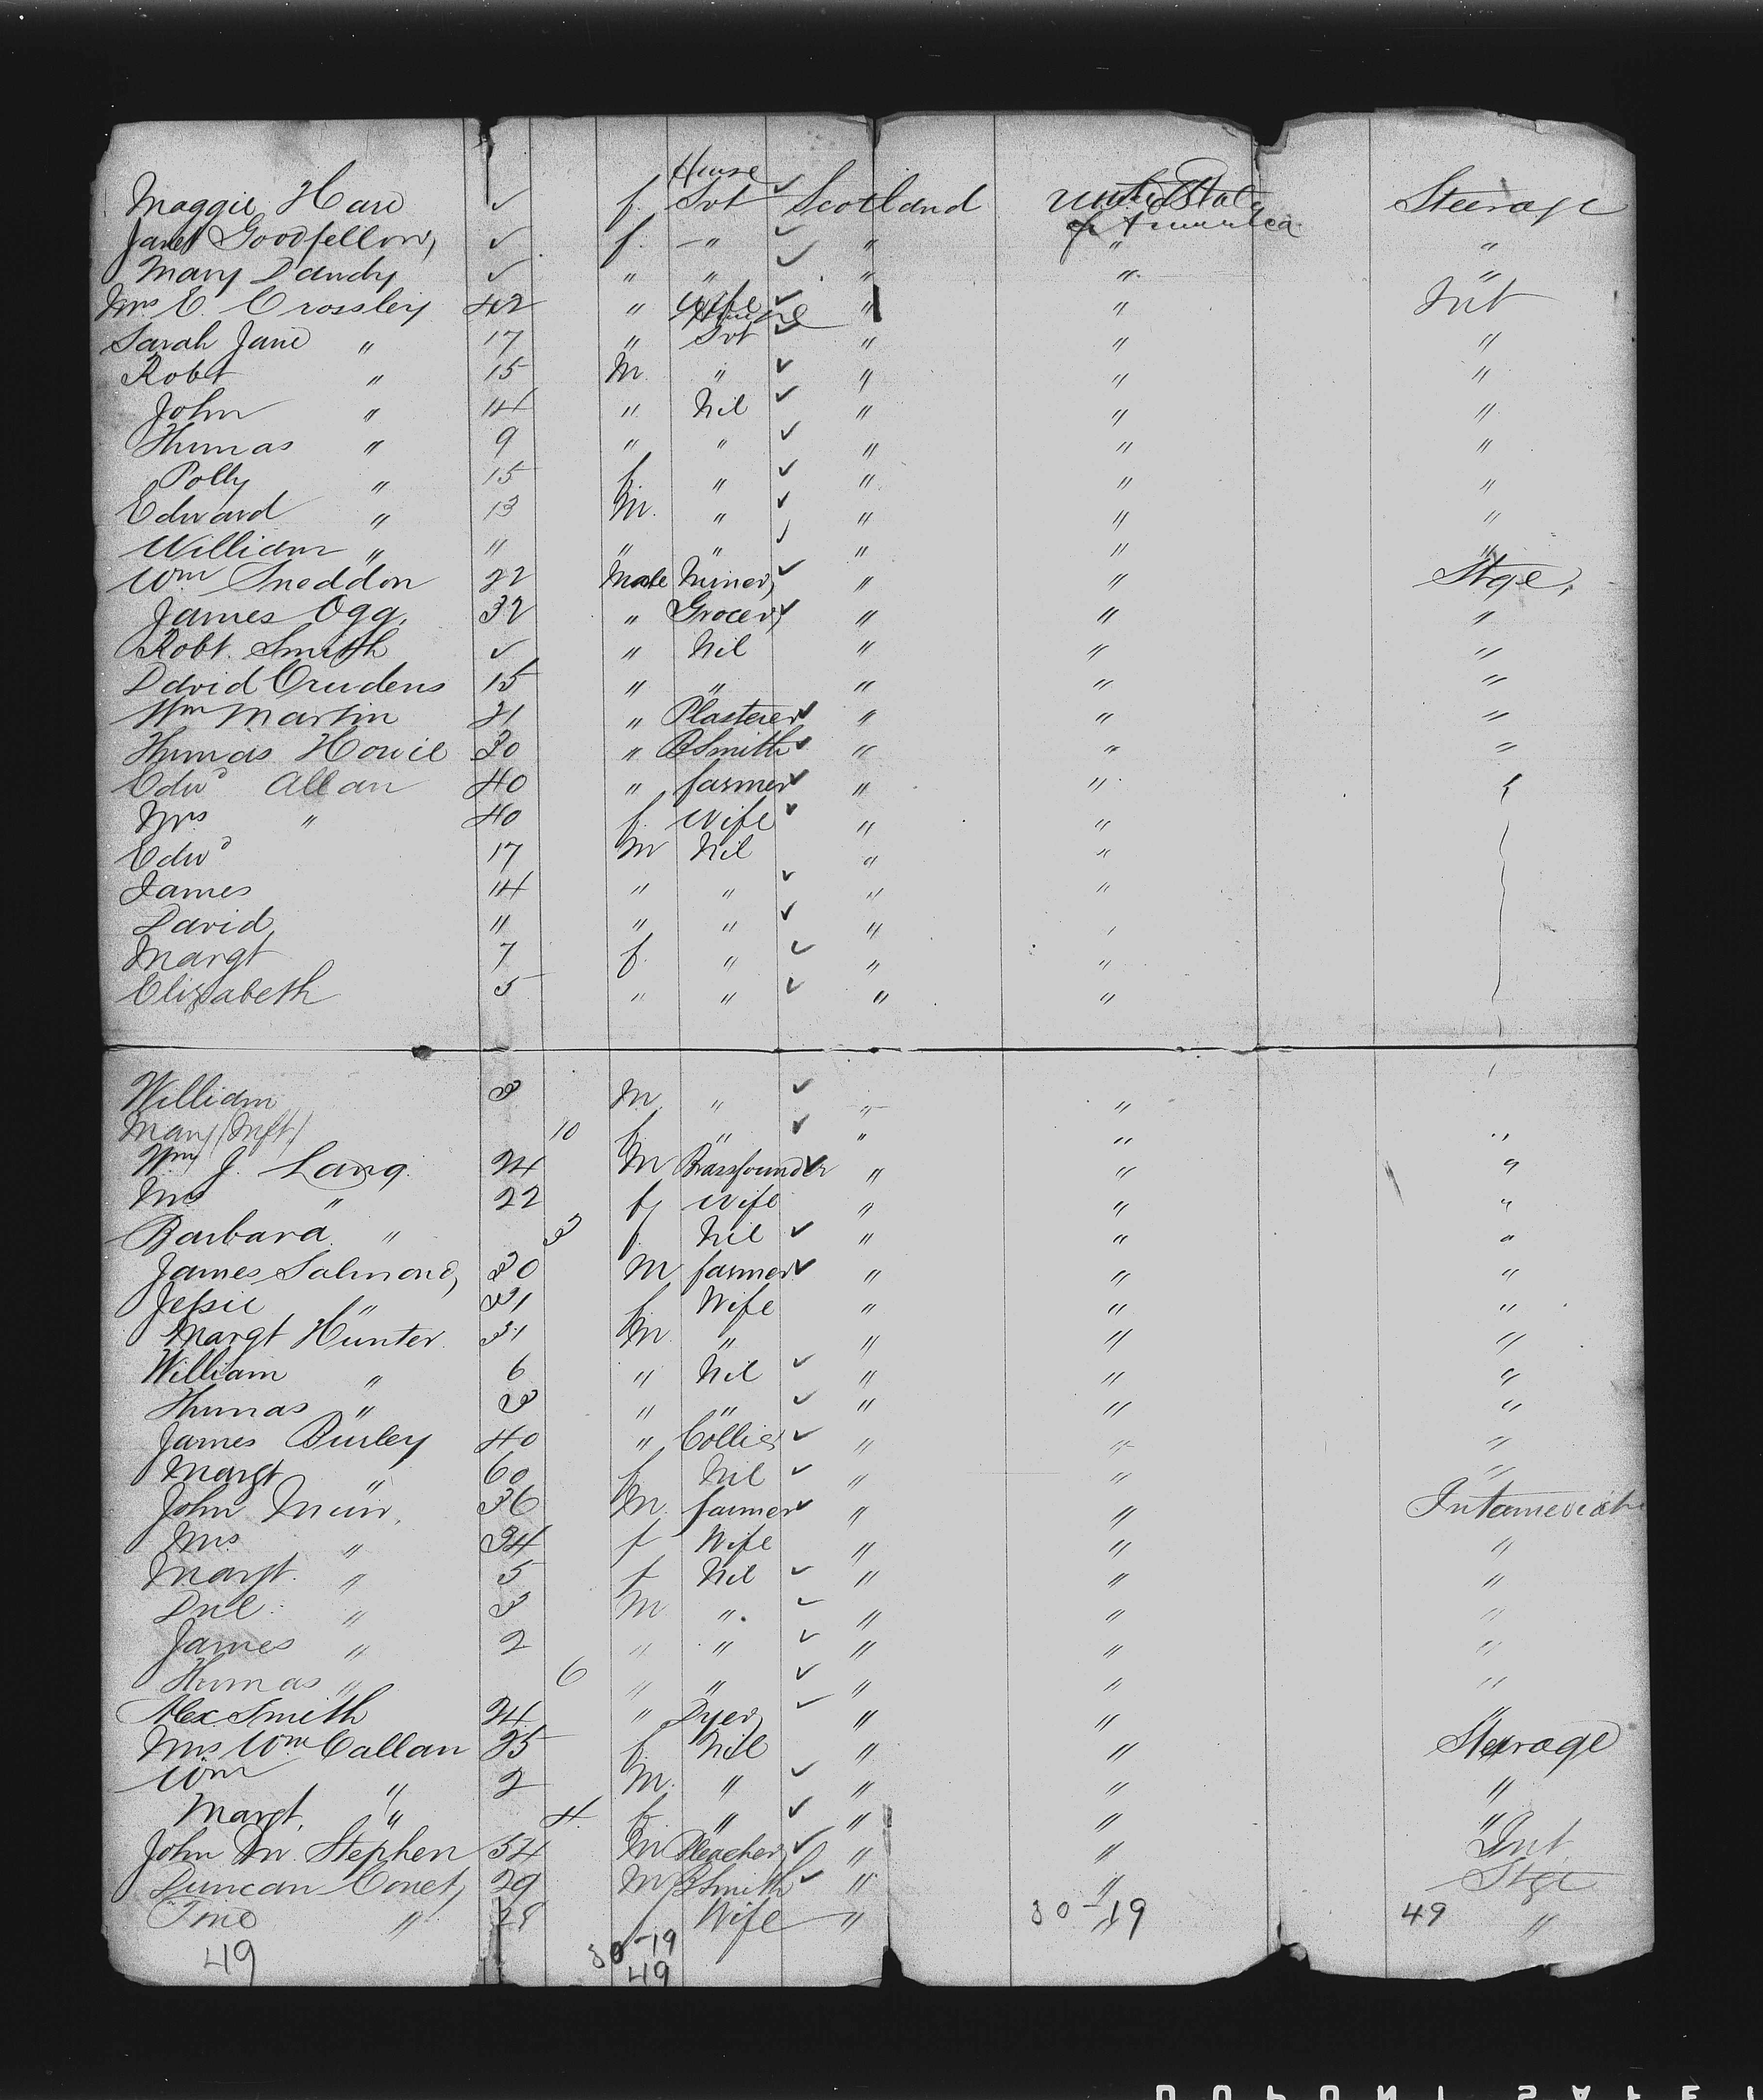 House
Maggie Hare ✓ f. Svt ✓ Scotland United States of America Steerage
Janet Goodfellow, ✓ f. -" ✓ " " "
Mary Dandy ✓ " " ✓ " " "
Mrs E. Crossley 42 " Wife ✓ " " Int
Sarah Jane " 17 " House Svt ✓ " " "
Robt " 15 M. " ✓ " " "
John " 14 " Nil ✓ " " "
Thomas " 9 " " ✓ " " "
Polly " 15 f. " ✓ " " "
Edward " 13 M. " ✓ " " "
William " 11 " " ✓ " " "
Wm Sneddon 22 Male Miner ✓ " " Stge,
James Ogg. 32 " Grocer ✓ " " "
Robt. Smith ✓ " Nil " " "
David Crudens 15 " " " " "
Wm Martin 21 " Plasterer ✓ " " "
Thomas Howie 30 " BSmith ✓ " " "
Edwd Allan 40 " farmer ✓ " "
Mrs " 40 f Wife ✓ " "
Edwd 17 M Nil " "
James 14 " " ✓ " "
David 11 " " ✓ "
Margt 7 f. " ✓ " "
Elizabeth 5 " " ✓ " "
William 3 M. " ✓ " "
Mary (Inft.) 10 f. " ✓ " " "
Wm J. Lang. 24 M Brassfounder ✓ " " "
Mrs " 22 f Wife " " "
Barbara " 3 f. Nil ✓ " " "
James Salmond, 30 M farmer ✓ " " "
Jessie " 31 f. Wife " " "
Margt Hunter 31 M. " " " "
William " 6 " Nil ✓ " " "
Thomas " 3 " " ✓ " " "
James Burley 40 " Collier ✓ " " "
Margt " 60 f Nil ✓ " " "
John Muir. 36 M. farmer ✓ " " Intermediate
Mrs " 34 f Wife " " "
Margt. " 5 f Nil ✓ " " "
Dnl. " 3 M ". ✓ " " "
James " 2 " " ✓ " " "
Thomas " 6 " " ✓ " " "
Alex Smith 24 " Dyer ✓ " " "
Mrs Wm Callan 25 f. Nil " " Steerage
Wm " 2 M. " ✓ " " "
Margt. " 4 f. " ✓ " " "
John M. Stephen 54 M Bleacher ✓ " " Int.
Duncan 29 M BSmith ✓ " " Stge
" 28 Wife " 30-19 49 "
49 30-19
49